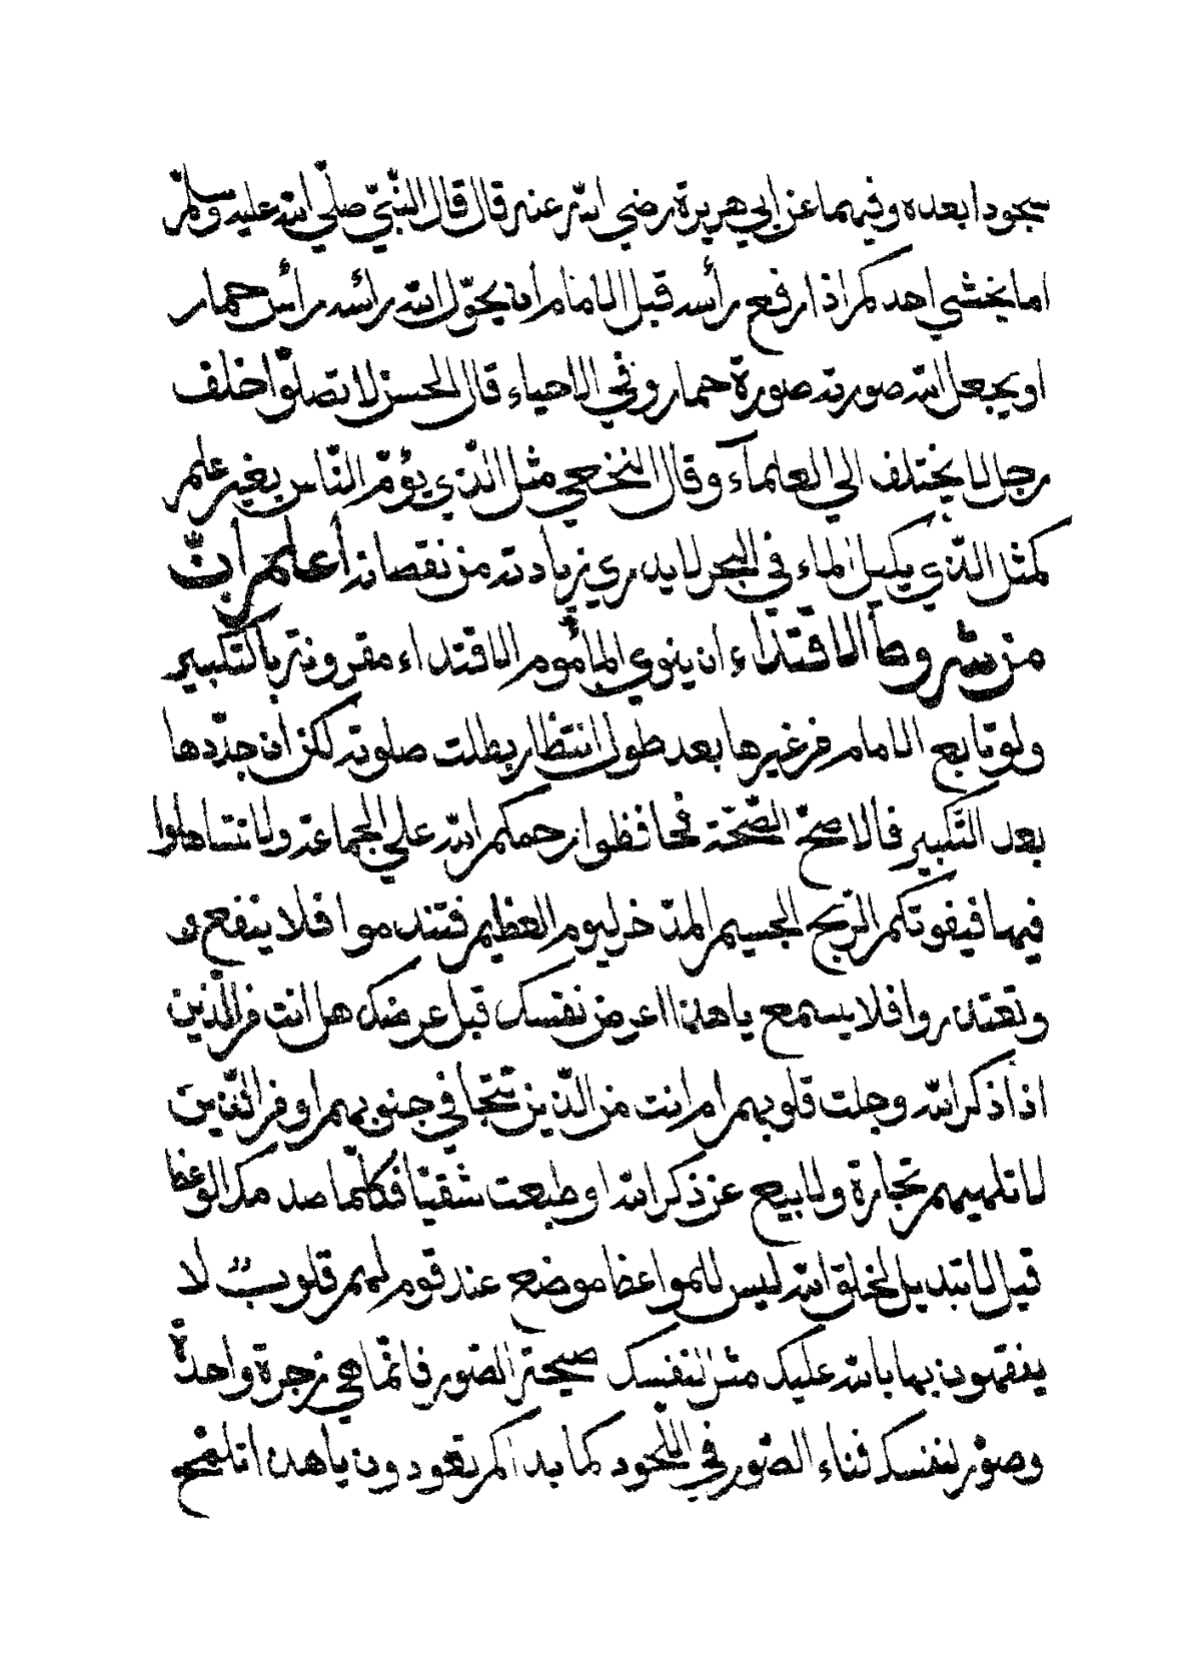 سجودا بعده وفيهما عن ابي هريرة رضي الله عنه قال قال النّبيّ صلّي الله عليه وسلّم
اما يخشي احدكم اذا رفع رأسه قبل الامام أن يحوّل الله رأسه رأس حمار
او يجعل الله صورته صورة حمار وفي الاحياء قال الحسن لا تصلّوا خلف
رجل لا يختلف الي العلمآء وقال النخعي مثل الّذي يؤمّ النّاس بغير علم
كمثل الّذي يكيل الماء في البحر لا يدري زيادته من نقصانه أعلم أنّ
من شروط الاقتداء ان ينوي المأموم الاقتداء مقرونة بالتّكبير
ولو تابع الامام في غيرها بعد طول انتظار بطلت صلوته لكن ان جدّدها
بعد التّكبير فالاصحّ الصّحّة فحافظوا رحمكم الله علي الجماعة ولا تتساهلوا
فيها فيفوتكم الرّبح الجسيم المدّخر ليوم العظيم فتندموا فلا ينفع و
وتعتذروا فلا يسمع يا هذا اعرض نفسك قبل عرضك هل انت من الّذين
اذا ذكر الله وجلت قلوبهم ام انت من الّذين تتجافي جنوبهم او من الّذين
لا تلهيهم تجارة ولا بيع عن ذكر الله او طبعت شقيّا فكلّما صدمك الوعظ
قيل لا تبديل لخلق الله ليس للمواعظ موضع عند قوم لهم قلوب لا
يفقهون بها بالله عليك مثل لنفسك صيحة الصّور فانّما هي زجرة واحدة
وصوّر لنفسك فناء الصّور في اللّحود كما بدأكم تعودون يا هذا